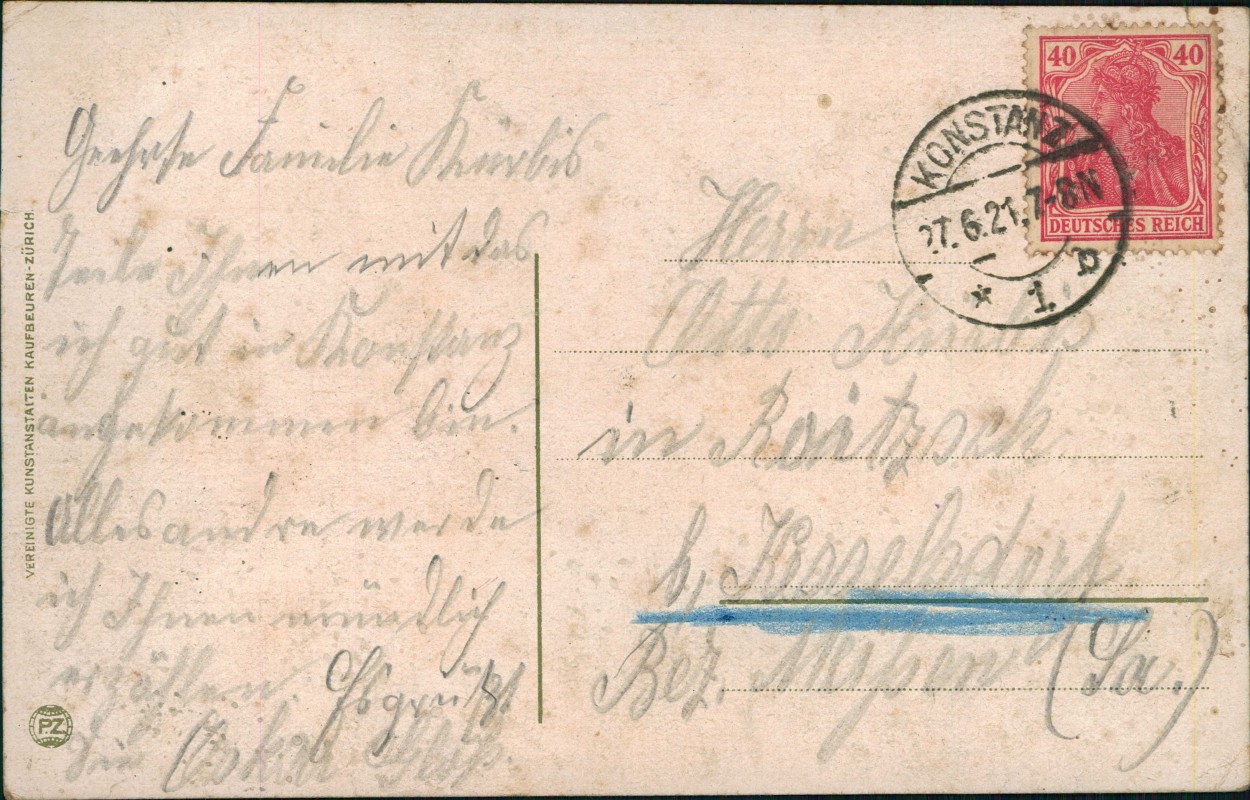 Geehrte Familie Kürbis
Teile Ihnen mit das
ich gut in Konstanz
angekommen bin.
Alles andre werde
ich Ihnen mündlich
erzählen. Es grüßt
Sie Oskar
VEREINIGTE KUNSTANSTALTEN KAUFBEUREN-ZÜRICH.
PZ
40 40
DEUTSCHES REICH
KONSTANZ
27.6.21.7-8N
* 1. a
Herrn
Otto Kürbis
in Roitzsch
b. Kesselsdorf
Bez. Meißen (Sa.)